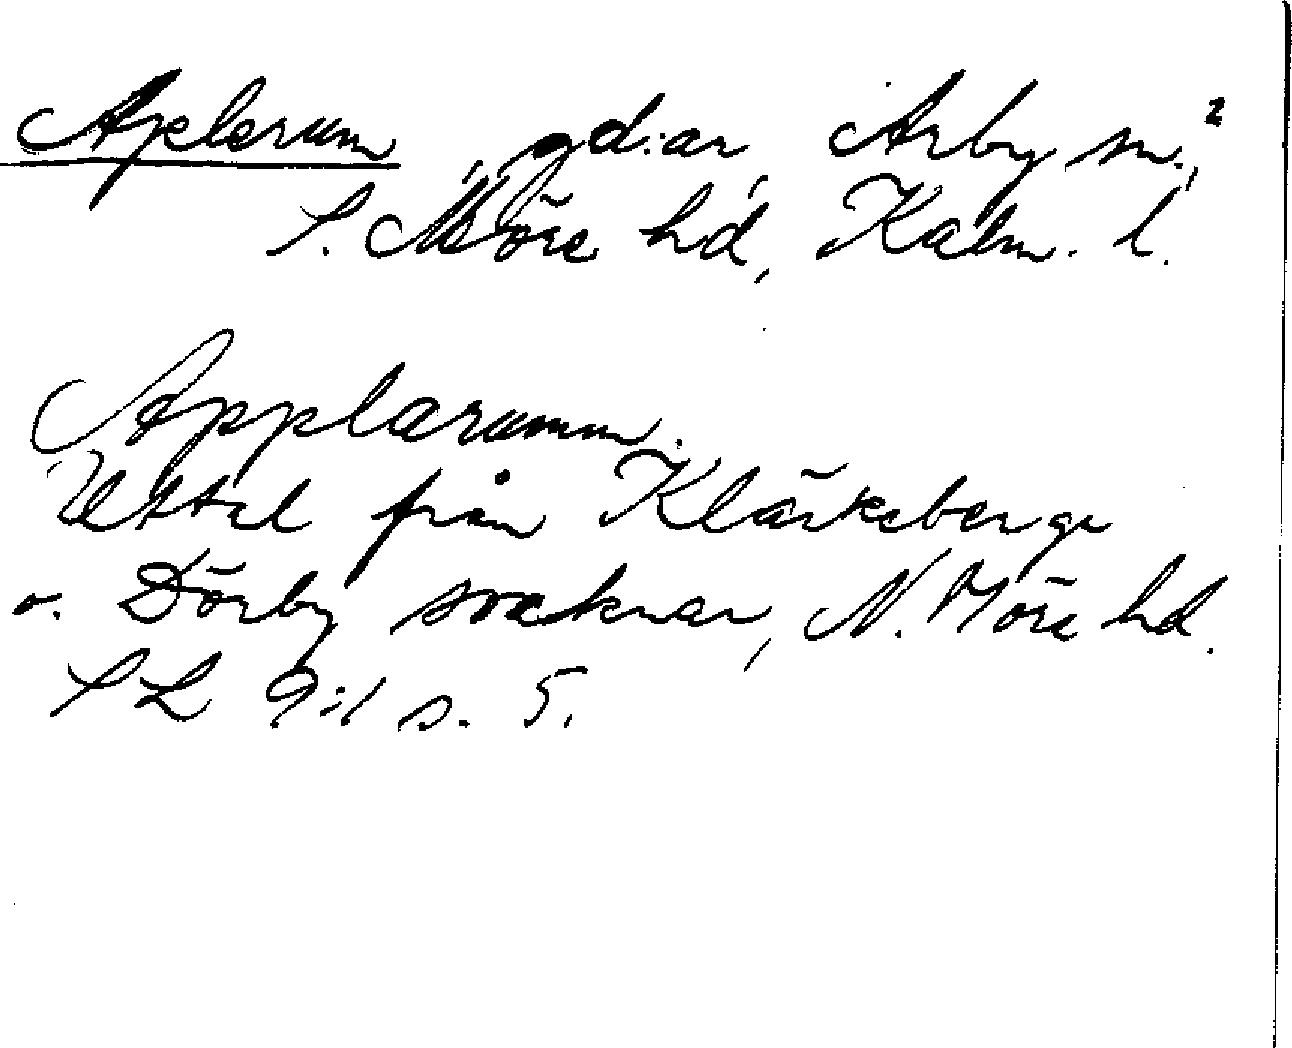 Aplerum, gd:ar, Arby sn.,²
S. Möre hd, Kalm. l.
Applarumm.
Uttal från Kläckeberga
o. Dörby socknar, N. Möre hd.
SL 9:1 s. 5.